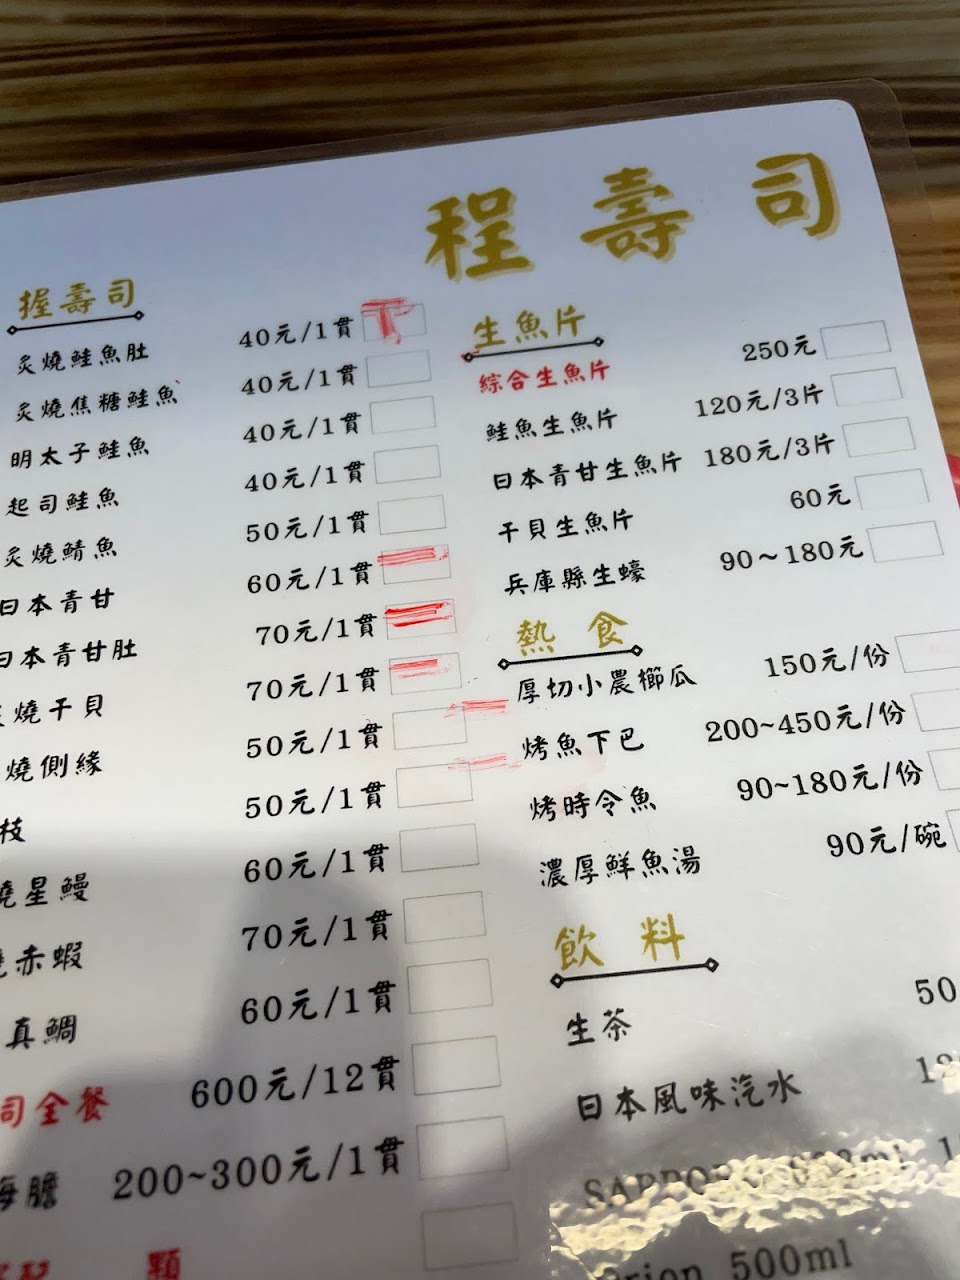 程壽司
握壽司
炙燒鮭魚肚 40元/1貫
炙燒焦糖鮭魚 40元/1貫
明太子鮭魚 40元/1貫
起司鮭魚 40元/1貫
炙燒鯖魚 50元/1貫
日本青甘 60元/1貫
日本青甘肚 70元/1貫
燒干貝 70元/1貫
燒側緣 50元/1貫
枝 50元/1貫
燒星鰻 60元/1貫
赤蝦 70元/1貫
真鯛 60元/1貫
司全餐 600元/12貫
海膽 200~300元/1貫
顆
生魚片
綜合生魚片 250元
鮭魚生魚片 120元/3片
日本青甘生魚片 180元/3片
干貝生魚片 60元
兵庫縣生蠔 90~180元
熱食
厚切小農櫛瓜 150元/份
烤魚下巴 200~450元/份
烤時令魚 90~180元/份
濃厚鮮魚湯 90元/碗
飲料
生茶 50
日本風味汽水 12
SAPPORO
500ml